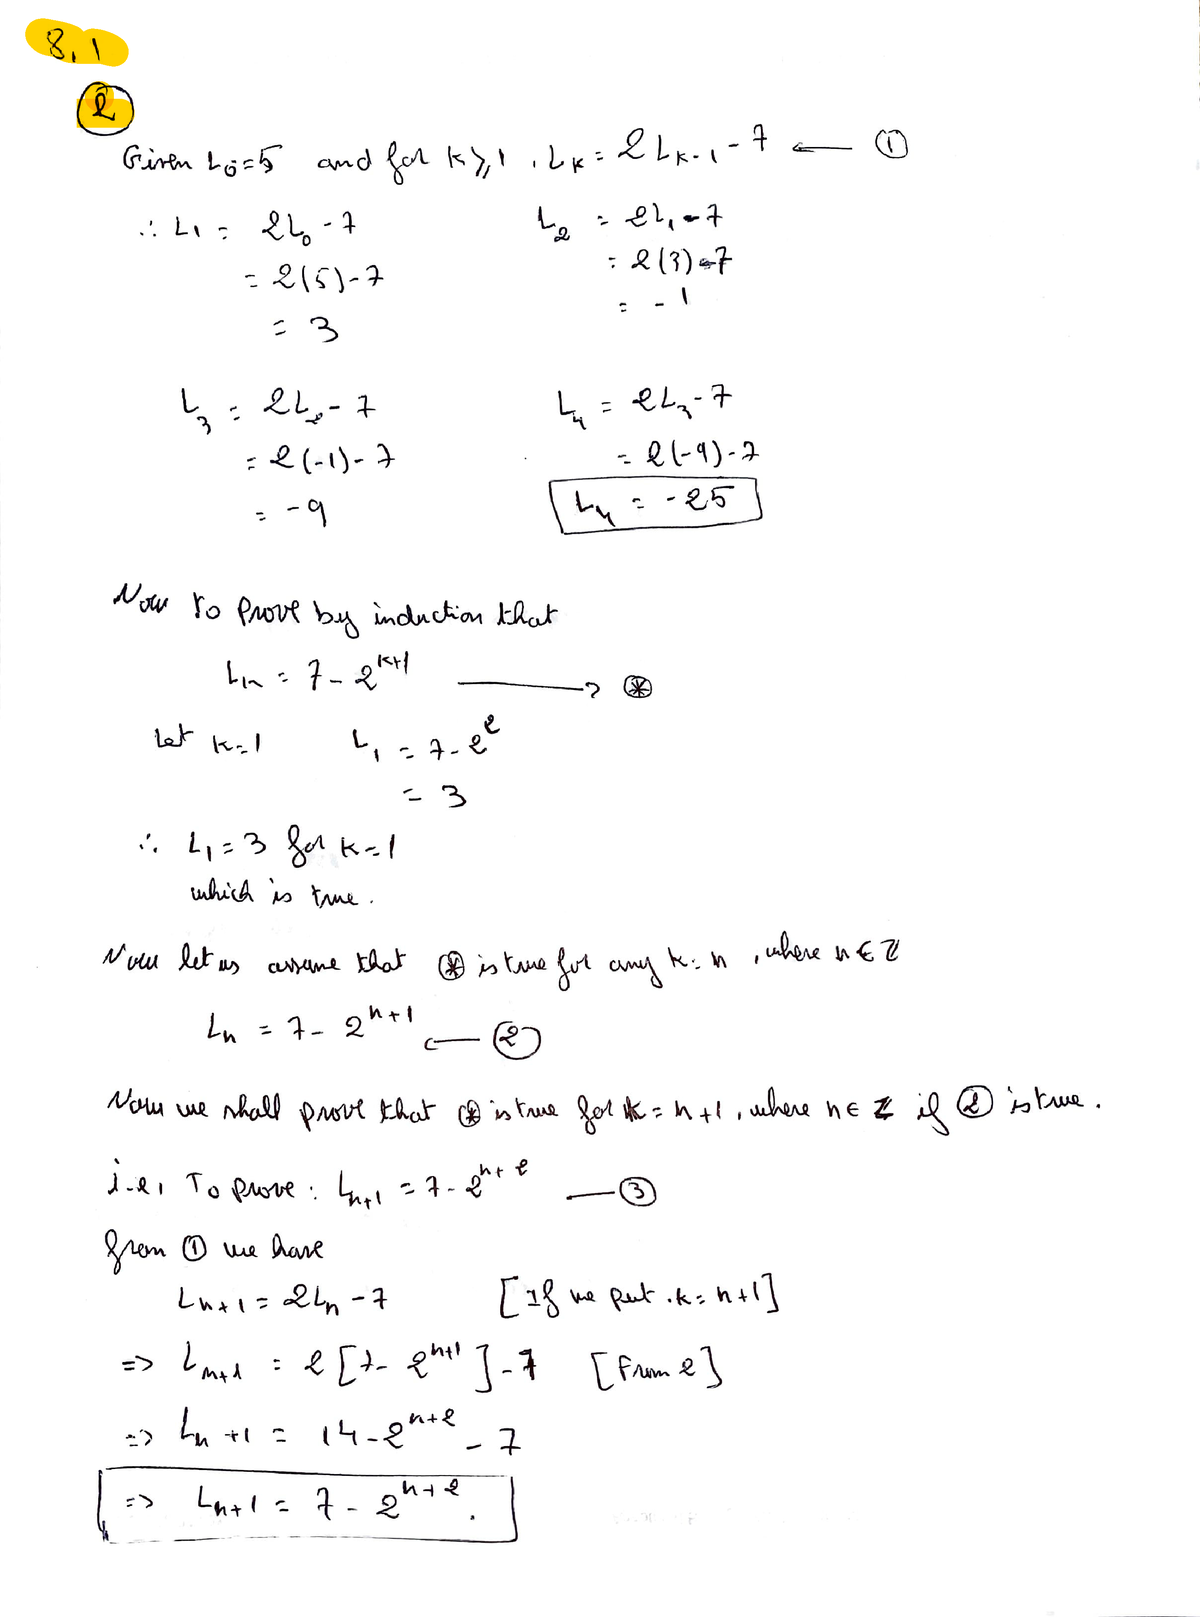 8.1
②
Given L₀=5 and for k≥1, Lₖ = 2Lₖ₋₁ - 7 ← ①
∴ L₁ = 2L₀ - 7
= 2(5) - 7
= 3
L₂ = 2L₁ - 7
= 2(3) - 7
= -1
L₃ = 2L₂ - 7
= 2(-1) - 7
= -9
L₄ = 2L₃ - 7
= 2(-9) - 7
L₄ = -25
Now to Prove by induction that
Lₖ = 7 - 2ᵏ⁺¹ → ⊛
Let k=1 L₁ = 7 - 2²
= 3
∴ L₁ = 3 for k=1
which is true.
Now let us assume that ⊛ is true for any k=n, where n∈ℤ
Lₙ = 7 - 2ⁿ⁺¹ ← ②
Now we shall prove that ⊛ is true for k=n+1, where n∈ℤ if ② is true.
i.e. To prove: Lₙ₊₁ = 7 - 2ⁿ⁺² — ③
from ① we have
Lₙ₊₁ = 2Lₙ - 7 [If we put k=n+1]
=> Lₙ₊₁ = 2[7 - 2ⁿ⁺¹] - 7 [From 2]
=> Lₙ₊₁ = 14 - 2ⁿ⁺² - 7
=> Lₙ₊₁ = 7 - 2ⁿ⁺².